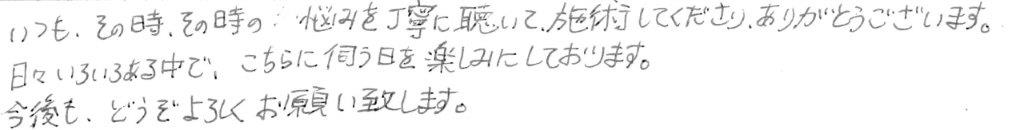 いつも、その時、その時の悩みを丁寧に聴いて、施術してくださり、ありがとうございます。
日々いろいろある中で、こちらに伺う日を楽しみにしております。
今後も、どうぞよろしくお願い致します。